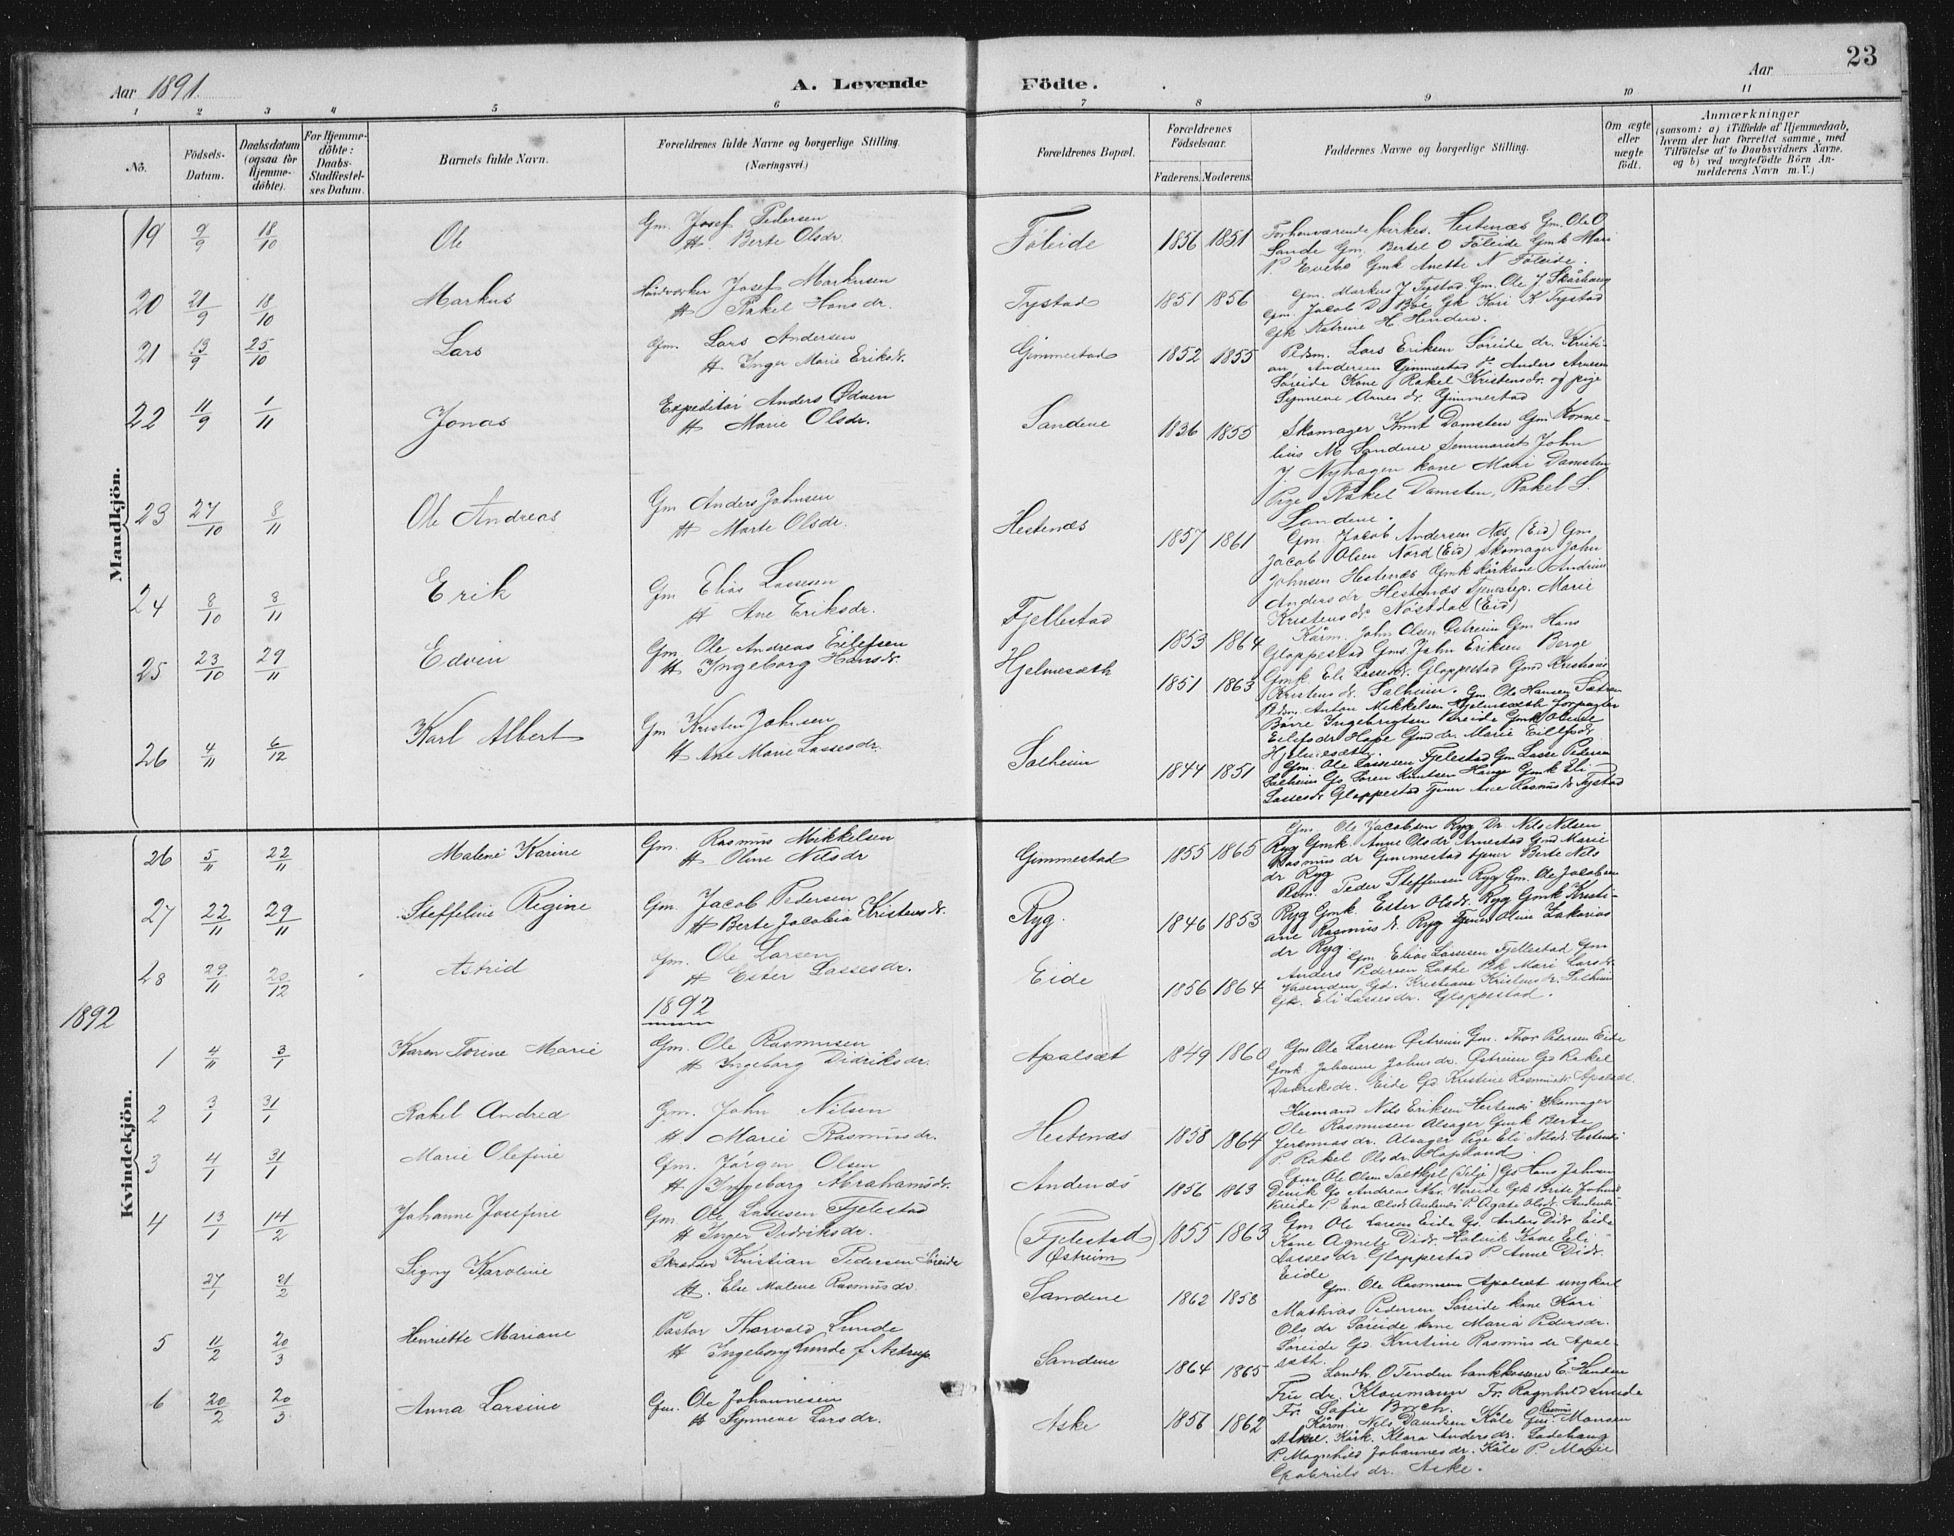 23
Aar 1891.
A. Levende Födte.
Aar
1 2 3 4 5 6 7 8 9 10 11
No.
Födsels-Datum.
Daabsdatum (ogsaa for Hjemme-döbte).
For Hjemme-döbte: Daabs-Stadfæstel-ses Datum.
Barnets fulde Navn.
Forældrenes fulde Navne og borgerlige Stilling. (Næringsvei.)
Forældrenes Bopæl.
Forældrenes Födselsaar.
Faderens. Moderens.
Faddernes Navne og borgerlige Stilling.
Om ægte eller uægte födt.
Anmærkninger
(saasom: a) i Tilfælde af Hjemmedaab,
hvem der har forrettet samme, med
Tilföielse af to Daabsvidners Navne,
og b) ved uægtefödte Börn An-
melderens Navn m. V.)
Mandkjön.
19 9/9 18/10 Ole Gm. Josef Pedersen
H Berte Olsdr
Föleide 1856 1851
Sande Gm. Bertel O Föleide Gmk Mari
Gmk Anette N Föleide.
20 21/9 18/10 Markus Josef Markusen
H Rakel Hansdr.
Tystad 1851 1856 Gm. Markus J Tystad Gm. Ole J Skårhaug
Gm. Jacob D Böe Gk Kari K Tystad
Gk Katrine H Henden.
21 13/9 25/10 Lars Gm. Lars Andersen
H Inger Marie Eriksdr.
Gimmestad 1852 1855 Lars Eriksen Söreide dr. Kristi-
an Andersen Gimmestad Anders Arnesen
Söreide Kone Rakel Kristensdr. og pige
Synneve Arnesdr. Gimmestad
22 11/9 1/11 Jonas Expeditör Anders Ödven
H Marie Olsdr.
Sandene 1836 1855 Skomager Knut Damsten Gm Korne-
lius M Sandene Seminarist John
J. Nyhagen kone Mari Damsten
Pige Rakel Damsten, Rakel S.
Sandene.
23 27/10 8/11 Ole Andreas Gm Anders Johnsen
H Marte Olsdr.
Hestenæs 1857 1861 Gm. Jacob Andersen Næs (Eid) Gm.
Jacob Olsen Nord (Eid) Skomager John
Johnsen Hestenæs
Andersdr Hestenæs Tjenestep. Marie
Kristensdr. Nöstdal (Eid)
24 8/10 8/11 Erik Gm Elias Lassesen
H Ane Eriksdr.
Fjellestad 1853 1864 Kårm. John Olsen Östreim Gm Hans
Gloppestad Gms. John Eriksen Berge
Gmk. Eli Lassesdr. Gloppestad Gmd Kristiane
Kristensdr. Salheim.
25 23/10 29/11 Edvin Gm. Ole Andreas Eilefsen
H Ingeborg Hansdr.
Hjelmesæth 1851 1863 Gm. Ole Hansen
Anton Mikkelsen Hjelmesæth Forpagter
Börre Ingebrigtsen Vereide Gmk
Eilefsdr Hope Gmdr. Marie Eilefsdr.
Hjelmesæth.
26 4/11 6/12 Karl Albert Gm Kristen Johnsen
H Ane Marie Lassesdr.
Salheim 1844 1851 Gm. Ole Lassesen Fjelestad Gm Lasse Pedersen
Salheim Gs. Sören Knutsen Hauge Gmk Eli
Lassesdr Gloppestad Tjener Ane Rasmusdr Tystad
Kvindekjön.
26 5/11 22/11 Malene Karine Gm. Rasmus Mikkelsen
H Oline Nilsdr
Gimmestad 1855 1865 Gm. Ole Jacobsen Ryg Dr. Nils Nilsen
Ryg Gmk. Anne Olsdr Arnestad Gmd Marie
Rasmusdr Gimmestad tjener Berte Nils
dr Ryg
27 22/11 29/11 Steffeline Regine Gm. Jacob Pedersen
H Berte Jacobia Kristensdr.
Ryg. 1846 1853 Peder Steffensen Ryg Gm. Ole Jacobsen
Ryg Gmk. Ester Olsdr. Ryg Gmk Kristi-
ane Rasmusdr. Ryg Tjener Oline Zakarias
dr Ryg.
28 29/11 20/12 Astrid Gm. Ole Larsen
H Ester Lassesdr.
Eide 1856 1864 Gm Elias Lassesen Fjellestad Gm
Anders Pedersen Lothe Mari Larsdr.
Vasenden Gd. Kristiane Kristensdr. Salheim
Gk. Eli Lassesdr. Gloppestad.
1892 1892
1 4/11 3/1 Karen Torine Marie Gm. Ole Rasmusen
H Ingeborg Didriksdr.
Apalsæt 1849 1860 Gm Ole Larsen Östreim Gm. Thor Petersen Eide
Gmk. Johanne Johnsdr. Östreim Gd Rakel
Didriksdr. Eide Gd Kristine Rasmusdr. Apalsæt.
2 3/1 31/1 Rakel Andrea Gm. John Nilsen
H Marie Rasmusdr.
Hestenæs 1858 1864 Husmand Nils Eriksen Hestenæs Skomager
Ole Rasmusen Alsager Gmk Berte
Jeremiasdr. Alsager Pige Eli Nilsdr. Hestenæs
P. Rakel Olsdr. Hopland.
3 4/1 31/1 Marie Olefine Gm. Jörgen Olsen
H Ingeborg Abrahamsdr.
Andenæs 1856 1863 Gm Ole Olsen Gs Hans Johnsen
Gs Andreas Vereide Gk Brite
Vereide P. Eva Olsdr Andenæs P. Agate Olsdr Andenæs
4 13/1 14/2 Johanne Josefine Gm. Ole Lassesen Fjelestad
H Inger Didriksdr.
(Fjelestad) Östreim 1855 1863 Gm Ole Larsen Eide Gs. Anders Didr. Eide
Kone Agnete Didr. Holvik Kone Eli
Lassesdr Gloppestad P. Anne Didr.
Eide
27/1 21/2 Signy Karoline Skrædder Kristian Pedersen Söreide
H. Else Malene Rasmusdr.
Sandene 1862 1858 Gm. Ole Rasmusen Apalsæt ungkarl
Mathias Pedersen Söreide kone Kari
Olsdr Söreide kone Maria Pedersdr.
Söreide Gd. Kristine Rasmusdr Apal-
sæth.
5 11/2 20/3 Henriette Mariane Pastor Thorvald Lunde
H Ingeborg Lunde f. Astrup.
Sandene 1864 1865 Landh. O Tenden bankkasserer E. Henden
Fru dr. Klaumann Fr. Ragnhild Lunde
Fr. Sofie Broch.
6 20/2 20/3 Anna Larsine Gm. Ole Johannesen
H Synneve Larsdr.
Aske 1856 1862 Kårm. Nils Davidsen Kåle Gm. Rasmus Monsen
Aske. Kårk. Klara Andersdr. Ladehaug
P. Magnhild Johannesdr. Kåle P. Marie
Gabrielsdr. Aske.